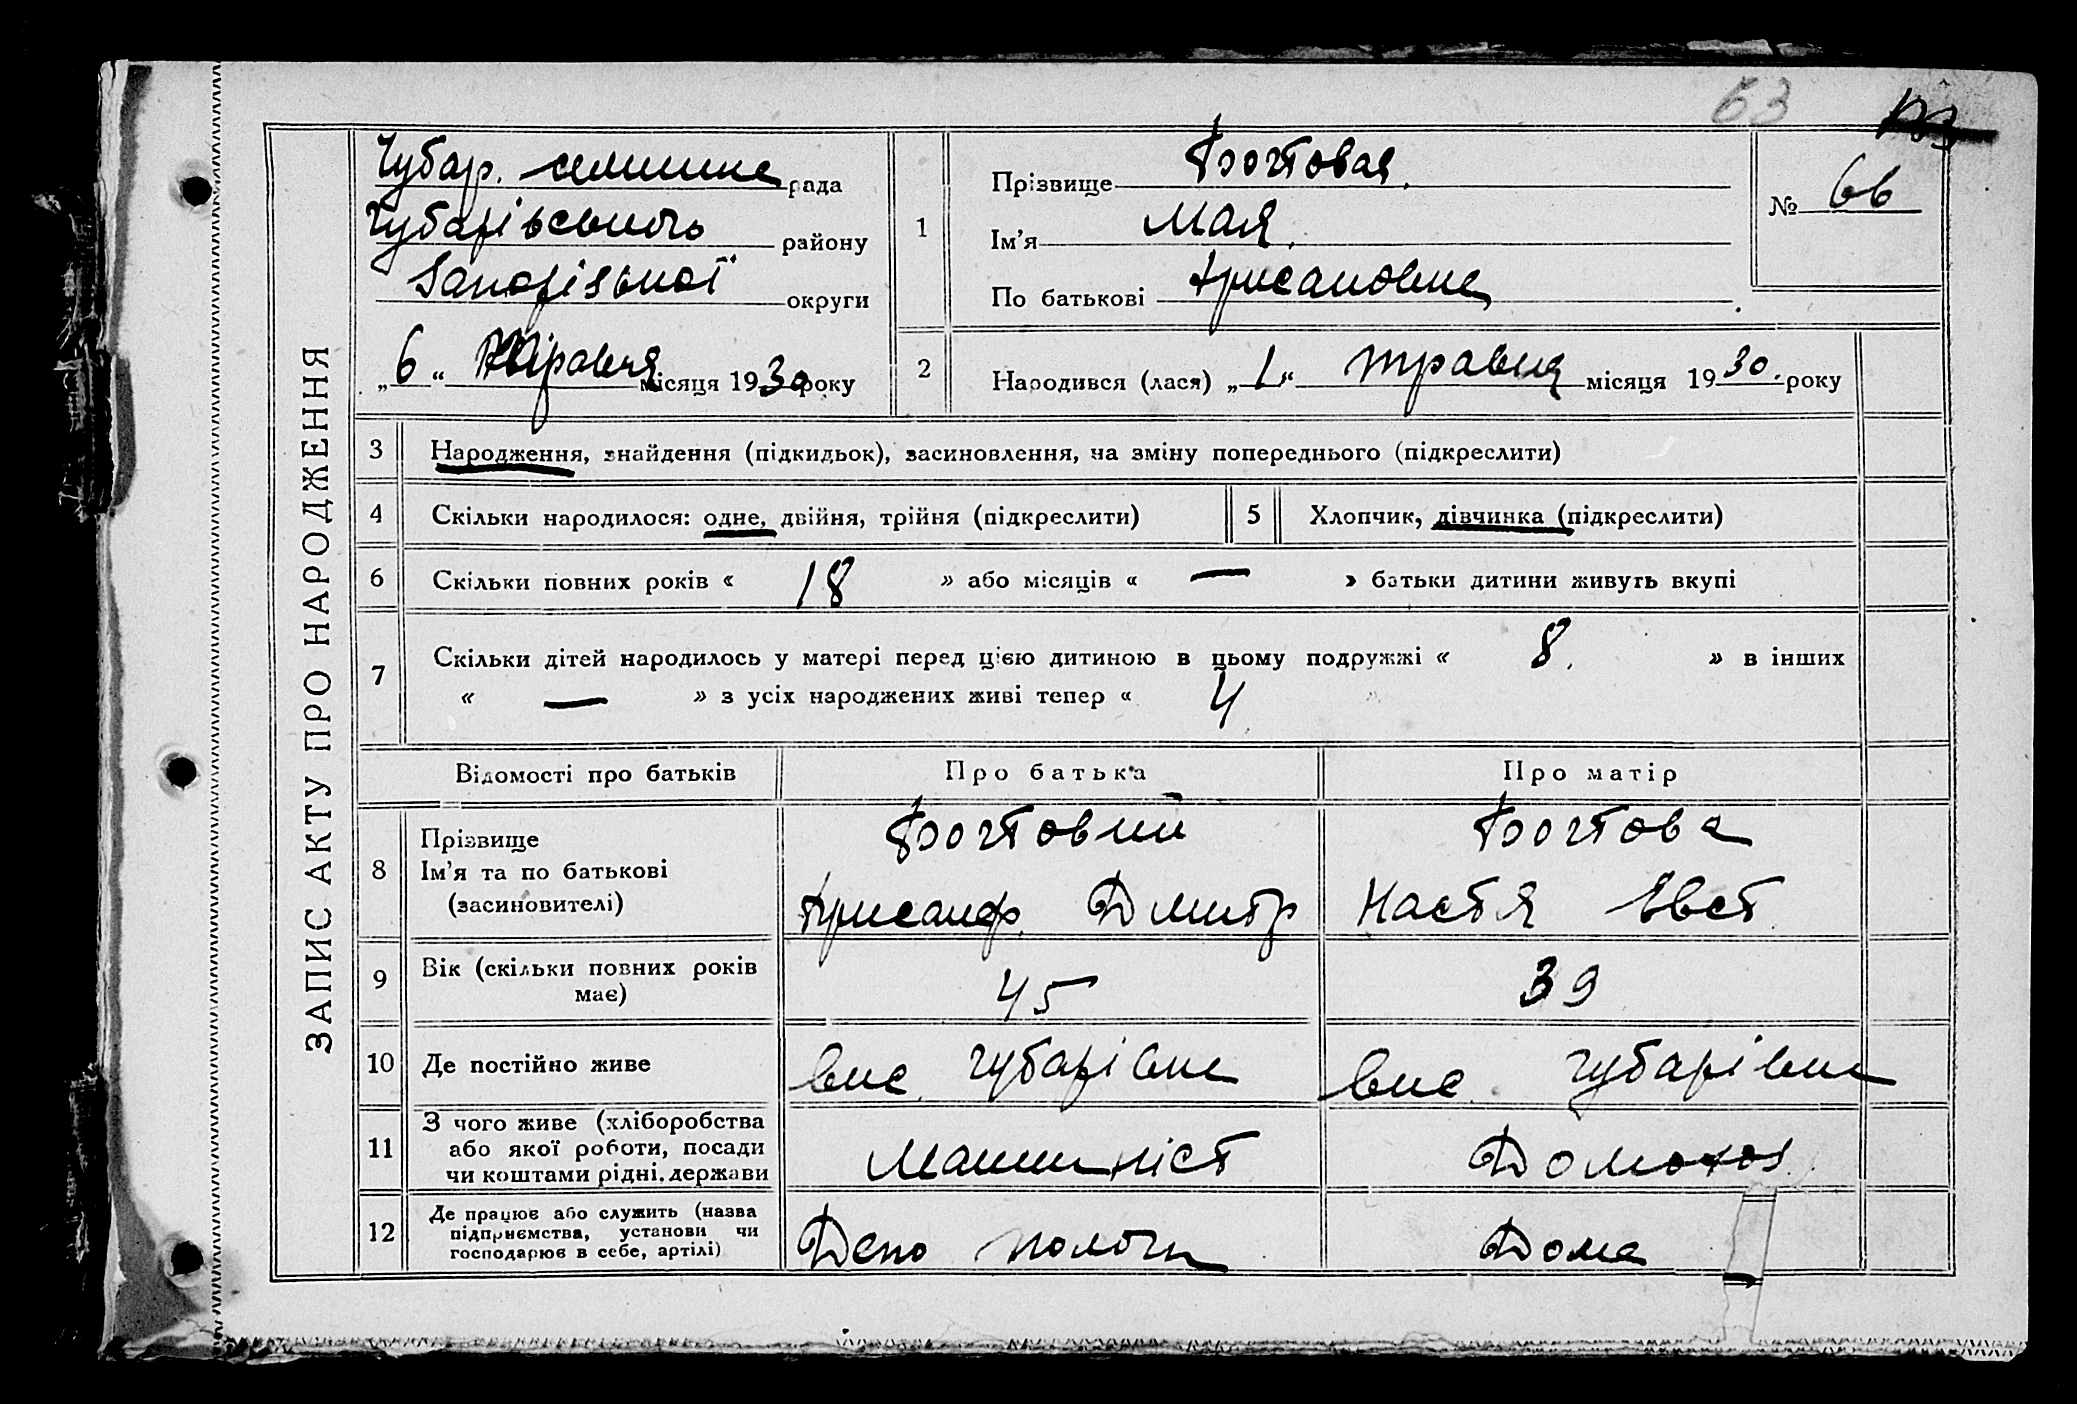 63
Чубар. селищна рада
Чубарівського району
Запорізької округи
„6“ Травня місяця 1930 року
1
Прізвище
Ім’я Мая
По батькові Хрисановна
№ 66
2
Народився (лася) „1“ травня місяця 1930. року
ЗАПИС АКТУ ПРО НАРОДЖЕННЯ
3 Народження, знайдення (підкидьок), засиновлення, на зміну попереднього (підкреслити)
4 Скільки народилося: одне, двійня, трійня (підкреслити)
5 Хлопчик, дівчинка (підкреслити)
6 Скільки повних років « 18 » або місяців « — » батьки дитини живуть вкупі
7 Скільки дітей народилось у матері перед цією дитиною в цьому подружжі « 8. » в інших
« — » з усіх народжених живі тепер « 4 »
Відомості про батьків
Про батька
Про матір
8 Прізвище
Ім’я та по батькові
(засиновителі)
Хрисанф. Дмитр
Настя Евст
9 Вік (скільки повних років
має)
45
39
10 Де постійно живе
вис. Чубарівка
вис. Чубарівка
11 З чого живе (хліборобства
або якої роботи, посади
чи коштами рідні, держави
Машиніст
Домохоз
12 Де працює або служить (назва
підприємства, установи чи
господарює в себе, артілі)
Депо Пологи
Дома